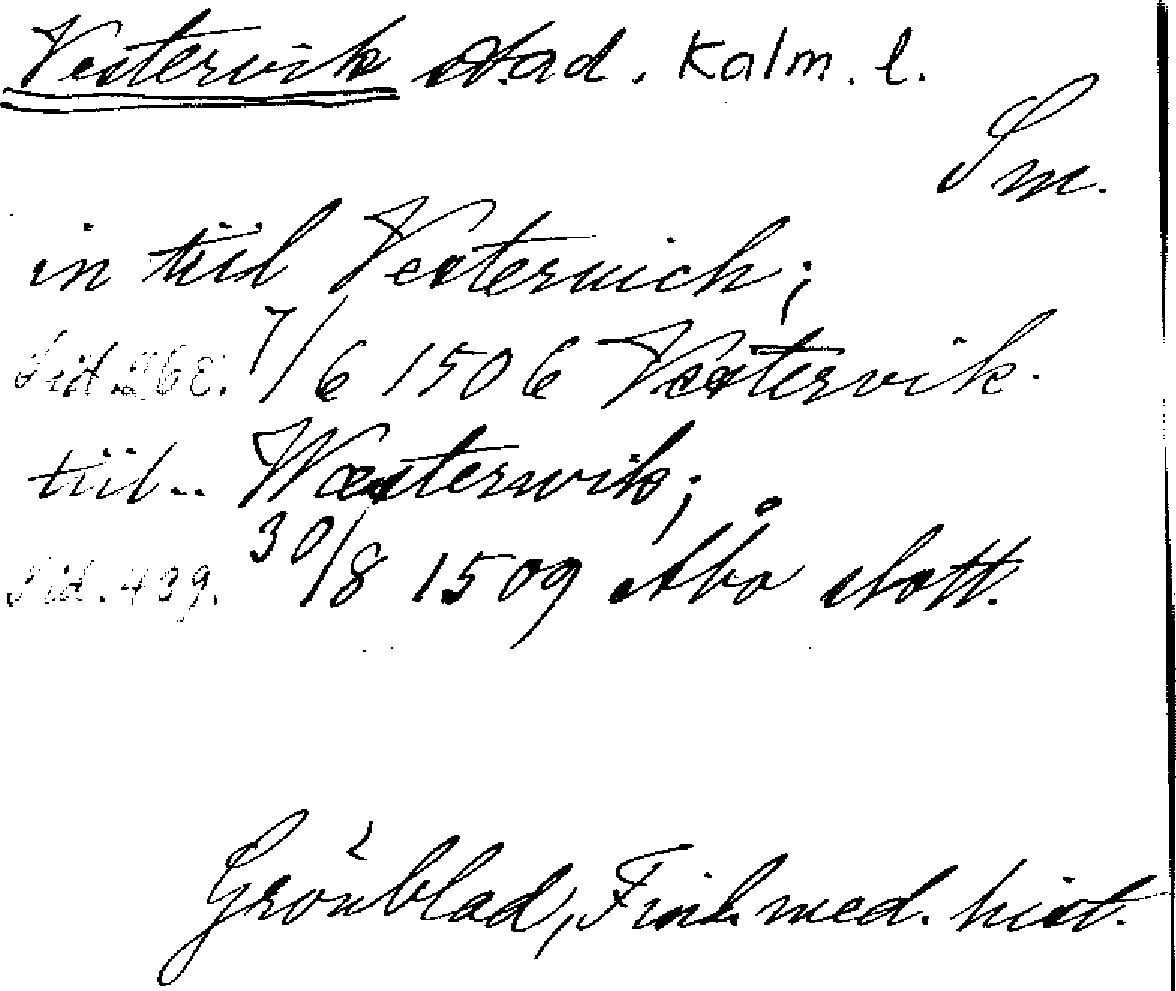 Vestervik stad. Kalm. l.
Sm.
in tiil Vesteruich;
Sid 268. 7/6 1506 Vestervik.
tiil.. Wæsterwik;
Sid. 439. 30/8 1509 Åbo slott.
Grönblad, Finl. med. hist.